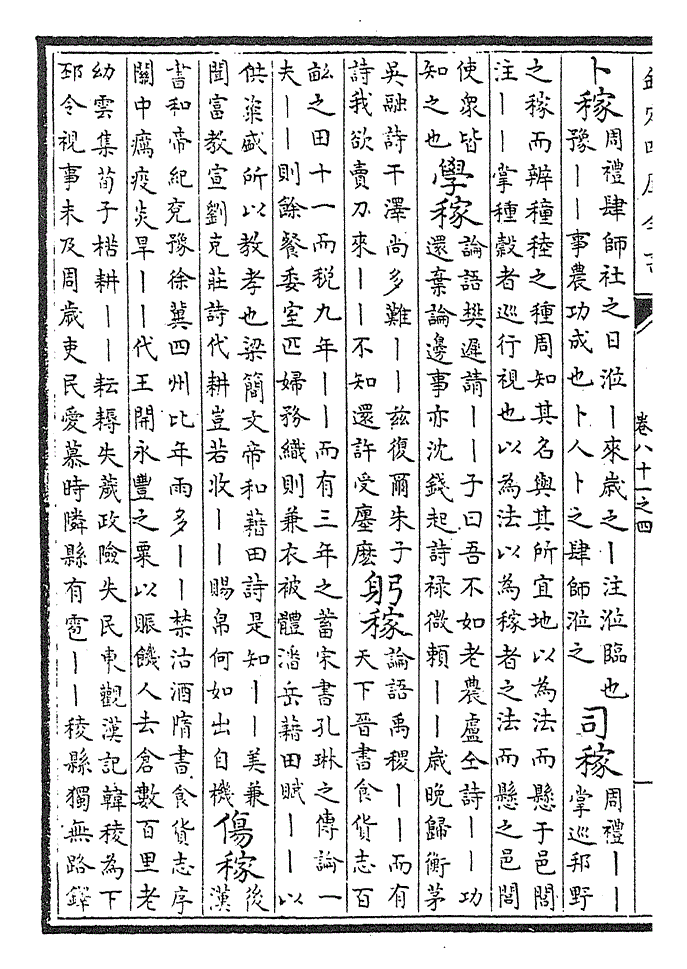 欽定四庫全書
卷八十一之四
卜稼
周禮肆師社之日涖丨來歲之丨注涖臨也
豫丨丨事農功成也卜人卜之肆師涖之
司稼
周禮丨丨
掌巡邦野
之稼而辨穜稑之種周知其名與其所宜地以為法而懸于邑閭
注丨丨掌種穀者巡行視也以為法以為稼者之法而懸之邑閭
使衆皆
知之也
學稼
論語樊遲請丨丨子曰吾不如老農盧仝詩丨丨功
還棄論邊事亦沈錢起詩禄微賴丨丨歲晚歸衡茅
吳融詩干澤尚多難丨丨兹復爾朱子
詩我欲賣刀來丨丨不知還許受廛麽
躬稼
論語禹稷丨丨而有
天下晉書食貨志百
畝之田十一而税九年丨丨而有三年之蓄宋書孔琳之傳論一
夫丨丨則餘餐委室匹婦務織則兼衣被體潘岳藉田賦丨丨以
供粢盛所以教孝也梁簡文帝和藉田詩是知丨丨美兼
閨富教宣劉克莊詩代耕豈若收丨丨賜帛何如出自機
傷稼
後
漢
書和帝紀兖豫徐冀四州比年雨多丨丨禁沽酒隋書食貨志序
關中癘疫炎旱丨丨代王開永豐之粟以賑饑人去倉數百里老
幼雲集荀子楛耕丨丨耘耨失薉政險失民東觀漢記韓稜為下
邳令視事未及周歲吏民愛慕時隣縣有雹丨丨稜縣獨無路鐸